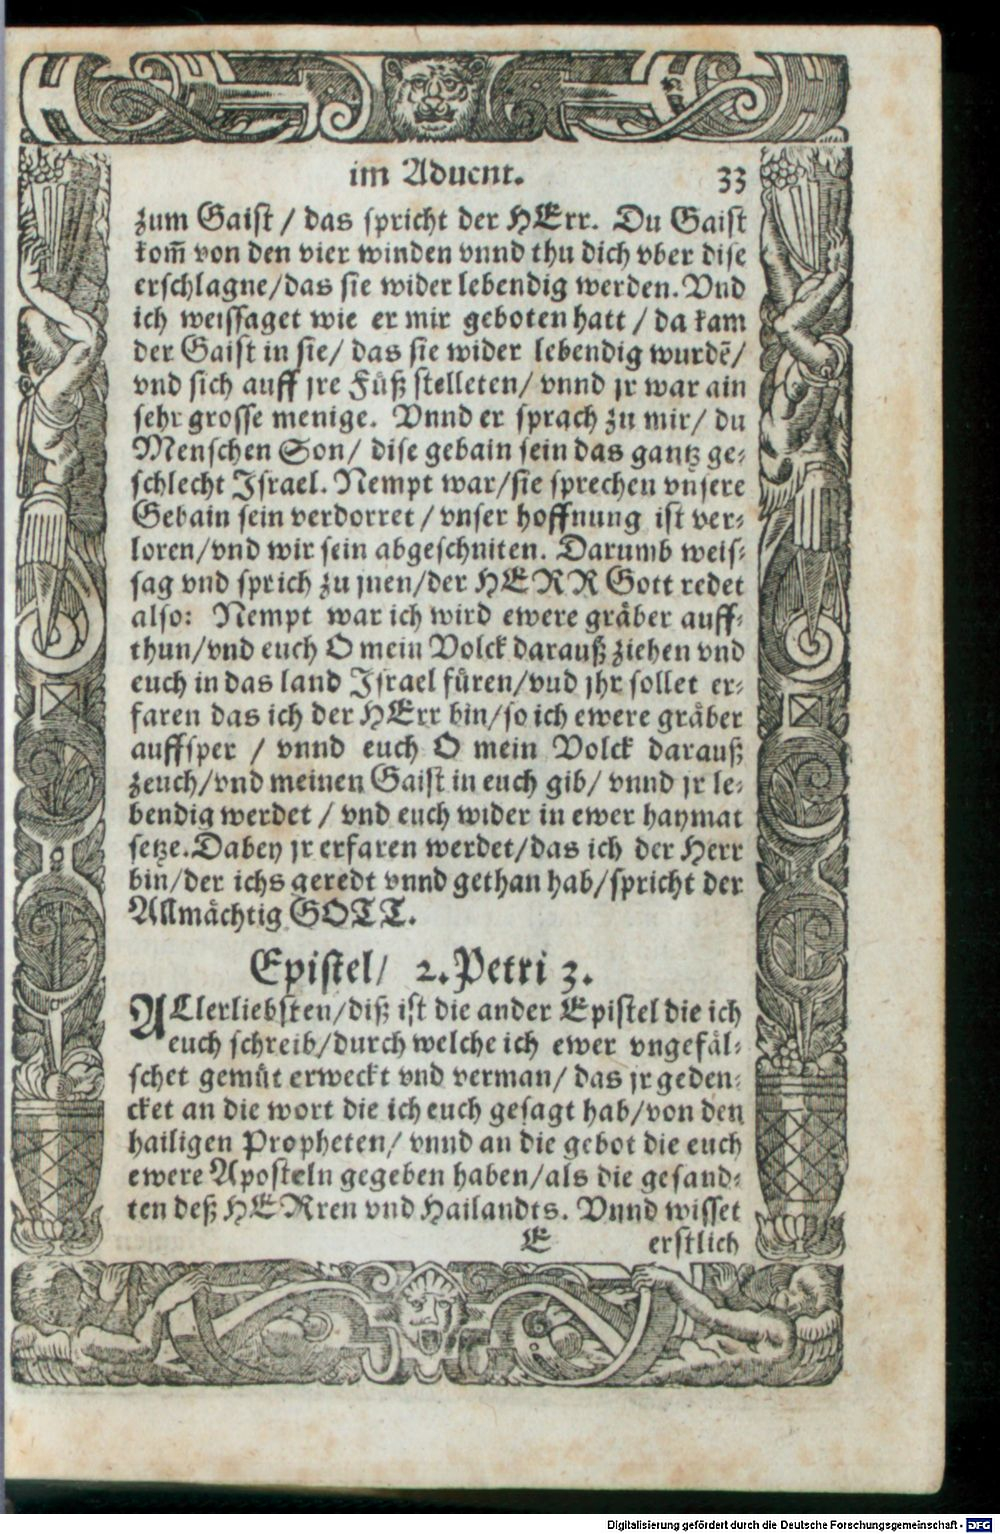 im Aduent. 33
zum Gaist / das spricht der HErr. Du Gaist
kom̄ von den vier winden vnnd thu dich vber dise
erschlagne/das sie wider lebendig werden. Vnd
ich weissaget wie er mir geboten hatt / da kam
der Gaist in sie/ das sie wider lebendig wurdē/
vnd sich auff jre Füß stelleten/ vnnd jr war ain
sehr grosse menige. Vnnd er sprach zu mir/ du
Menschen Son/ dise gebain sein das gantz ge-
schlecht Israel. Nempt war/sie sprechen vnsere
Gebain sein verdorret / vnser hoffnung ist ver-
loren/vnd wir sein abgeschniten. Darumb weis-
sag vnd sprich zu jnen/der HERR Gott redet
also: Nempt war ich wird ewere gräber auff-
thun/vnd euch O mein Volck darauß ziehen vnd
euch in das land Israel füren/vnd jhr sollet er-
faren das ich der HErr bin/so ich ewere gräber
auffsper / vnnd euch O mein Volck darauß
zeuch/vnd meinen Gaist in euch gib/ vnnd jr le-
bendig werdet / vnd euch wider in ewer haymat
setze. Dabey jr erfaren werdet/das ich der Herr
bin/der ichs geredt vnnd gethan hab/spricht der
Allmächtig GOTT.
Epistel/ 2. Petri 3.
ALlerliebsten/diß ist die ander Epistel die ich
euch schreib/durch welche ich ewer vngefäl-
schet gemüt erweckt vnd verman/ das jr geden-
cket an die wort die ich euch gesagt hab/von den
hailigen Propheten/ vnnd an die gebot die euch
ewere Aposteln gegeben haben/als die gesand-
ten deß HERren vnd Hailandts. Vnnd wisset
E erstlich
Digitalisierung gefördert durch die Deutsche Forschungsgemeinschaft - DFG